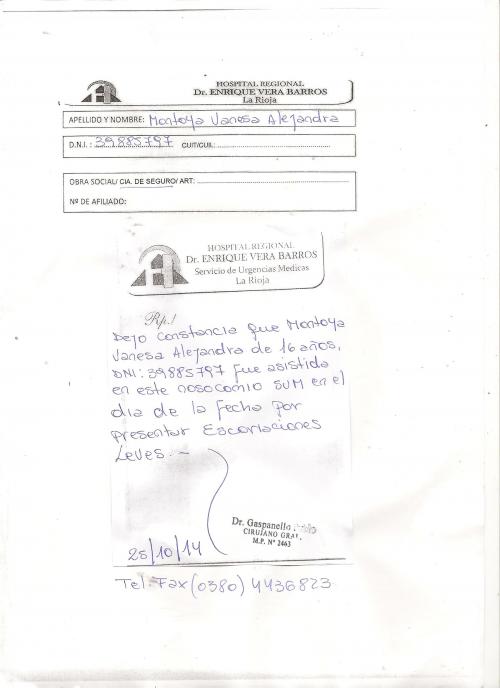 HOSPITAL REGIONAL
Dr. ENRIQUE VERA BARROS
La Rioja
APELLIDO Y NOMBRE: Montoya Vanesa Alejandra
D.N.I. : 39885797 CUIT/CUIL:
OBRA SOCIAL/ CIA. DE SEGURO/ ART:
Nº DE AFILIADO:
HOSPITAL REGIONAL
Dr. ENRIQUE VERA BARROS
Servicio de Urgencias Medicas
La Rioja
Rp.!
Dejo constancia que Montoya
Vanesa Alejandra de 16 años,
DNI: 39885797 fue asistida
en este nosocomio SUM en el
dia de la fecha por
presentar Escoriaciones
Leves.-
Dr. Gaspanello
CIRUJANO GRAL.
M.P. Nº 2463
25/10/14
Tel. Fax (0380) 4436823